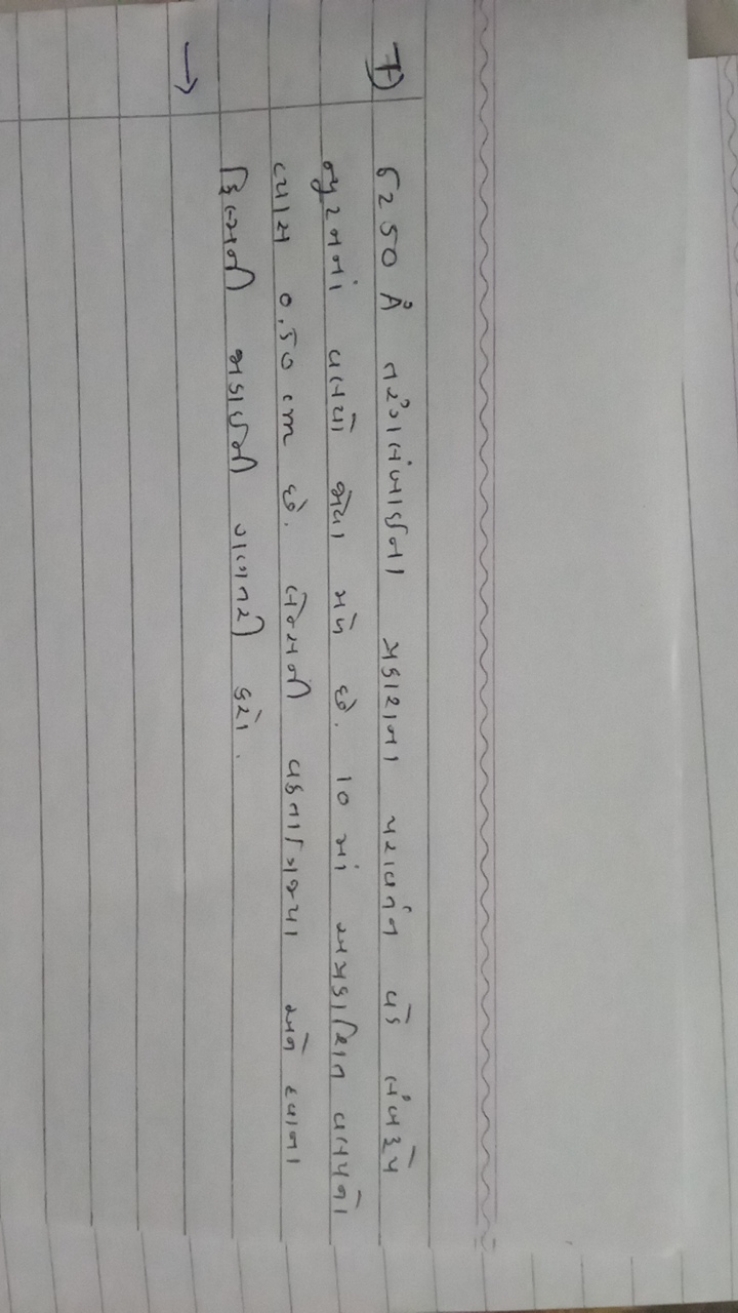 7) 6250 Å તરંગલંબાઈના પ્રકાશના પરાવર્તન વડે લંબરૂપે
ન્યુટનનાં વલયો જોવા મળે છે. 10 માં અપ્રકાશિત વલયનો
વ્યાસ 0.50 cm છે. લેન્સની વક્રતાત્રિજ્યા અને હવાના
ફિલ્મની જાડાઈની ગણતરી કરો.
→